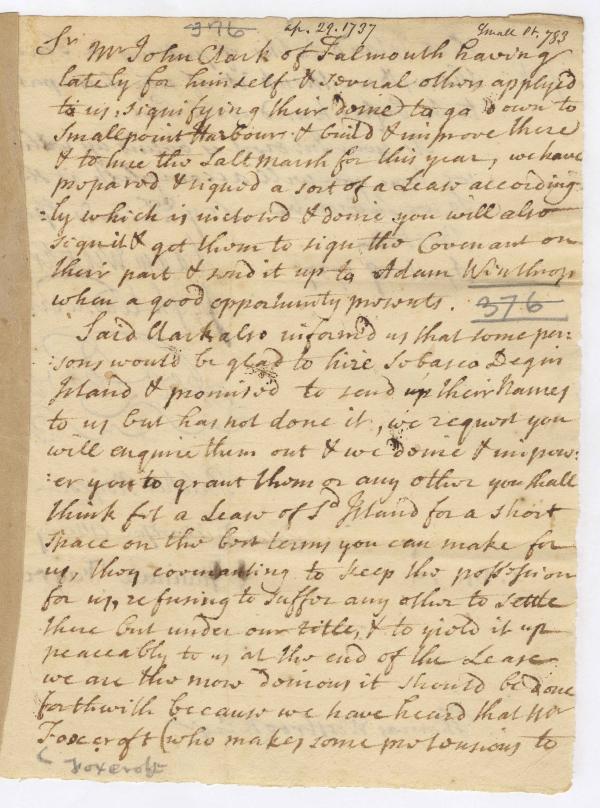 376 ap. 29. 1737 Small Pt. 783
Sr. Mr John Clark of Falmouth having
lately for himself & several others applyed
to us, signifying their desire to go down to
Smallpoint Harbour & build & improve there
& to hire the Salt Marsh for this year, we have
prepared & signed a sort of a Lease according
:ly which is inclosed & desire you will also
sign it & get them to sign the Covenant on
their part & send it up to Adam Winthrop
when a good opportunity presents.
376
Said Clark also informed us that some per:
:sons would be glad to hire Sebasco Degin
Island & promised to send up their Names
to us but has not done it, we request you
will enquire them out & we desire & impow:
:er you to grant them or any other you shall
think fit a Lease of Sd. Island for a short
space on the best terms you can make for
us, they covenanting to keep the possession
for us, refusing to suffer any other to settle
there but under our title, & to yield it up
peaceably to us at the end of the Lease
we are the more desirous it should be done
forthwith because we have heard that Mr
Foxcroft (who makes some pretensions to
Foxcroft